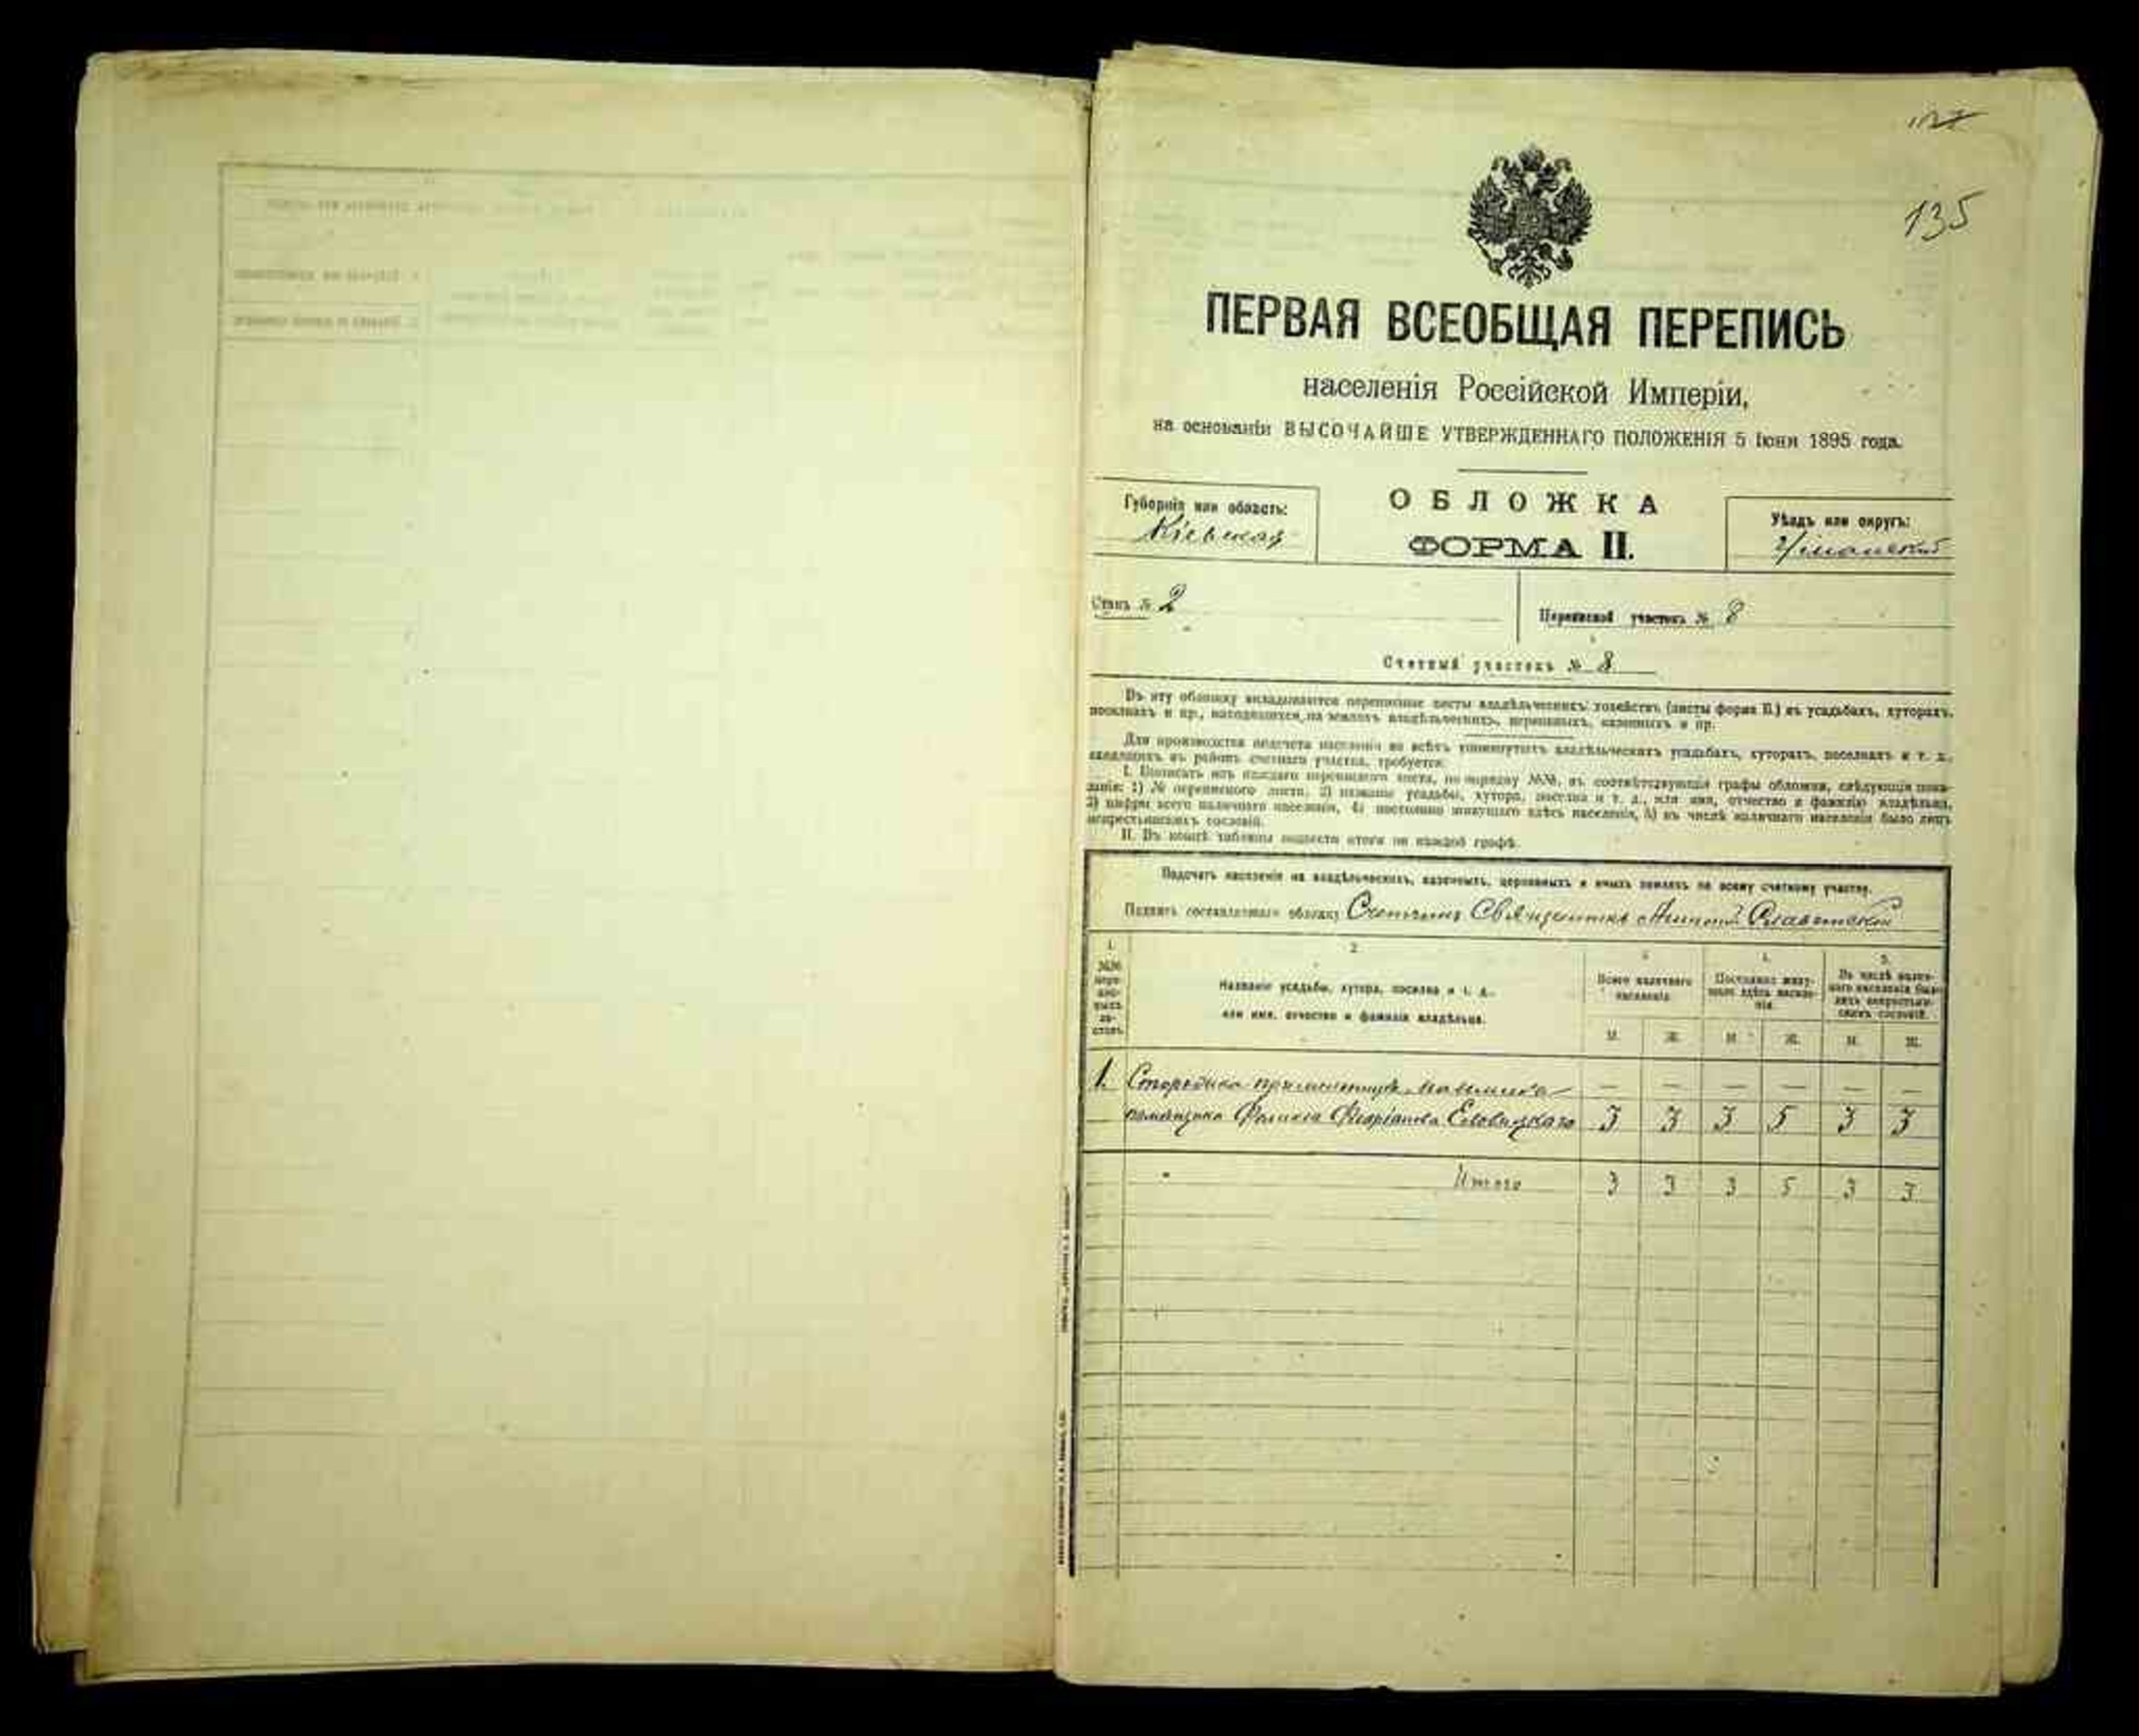 135
ПЕРВАЯ ВСЕОБЩАЯ ПЕРЕПИСЬ
населенія Россійской Имперіи,
на основаніи ВЫСОЧАЙШЕ УТВЕРЖДЕННАГО ПОЛОЖЕНІЯ 5 Іюня 1895 года.
Губернія или область:
Кіевская
ОБЛОЖКА
ФОРМА II.
Уѣздъ или округъ:
Уманскій
Станъ № 2
Переписной участокъ № 8
Счетный участокъ № 8
Въ эту обложку вкладываются переписные листы владѣльческихъ хозяйствъ (листы форма Б.) въ усадьбахъ, хуторахъ,
поселкахъ и пр., находящихся на земляхъ владѣльческихъ, церковныхъ, казенныхъ и пр.
Для производства подсчета населенія во всѣхъ упомянутыхъ владѣльческихъ усадьбахъ, хуторахъ, поселкахъ и т. д.,
входящихъ въ районъ счетнаго участка, требуется:
I. Выписать изъ каждаго переписного листа, по порядку №№, въ соотвѣтствующія графы обложки, слѣдующія пока-
занія: 1) № переписного листа, 2) названіе усадьбы, хутора, поселка и т. д., или имя, отчество и фамилію владѣльца,
3) цифры всего наличнаго населенія, 4) постоянно живущаго здѣсь населенія, 5) въ числѣ наличнаго населенія было лицъ
некрестьянскихъ сословій.
II. Въ концѣ таблицы подвести итоги по каждой графѣ.
Подсчетъ населенія на владѣльческихъ, казенныхъ, церковныхъ и иныхъ земляхъ по всему счетному участку.
Подпись составлявшаго обложку Счетчикъ Священникъ
1. 2. 3. 4. 5.
№№ переписныхъ листовъ.
Названіе усадьбы, хутора, поселка и т. д.,
или имя, отчество и фамилія владѣльца.
Всего наличнаго населенія.
Постоянно живущаго здѣсь населенія.
Въ числѣ наличнаго населенія было лицъ некрестьянскихъ сословій.
М. Ж. М. Ж. М. Ж.
1. — — — — — —
помѣщика Феликса Еловицкаго 3 3 3 5 3 3
Итого 3 3 3 5 3 3